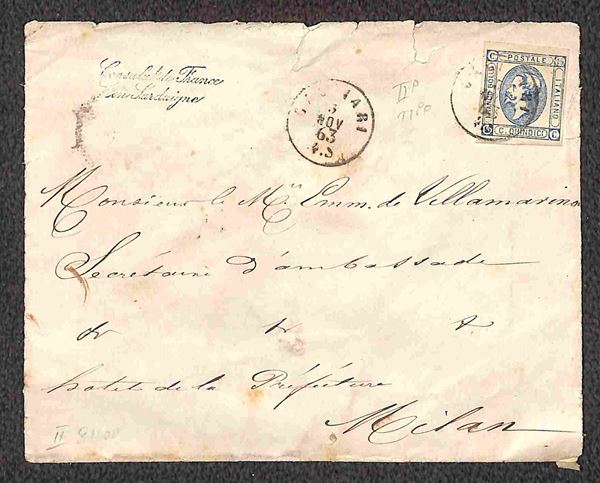 Consulat de France
en Sardaigne
CAGLIARI
3
NOV
63
4. S
II P
TIPO
FRANCO BOLLO
POSTALE
ITALIANO
C. QUINDICI
Monsieur le Mis Emm. de Villamarina
Secrétaire d'ambassade
& & &
hotel de la Préfecture
Milan
II